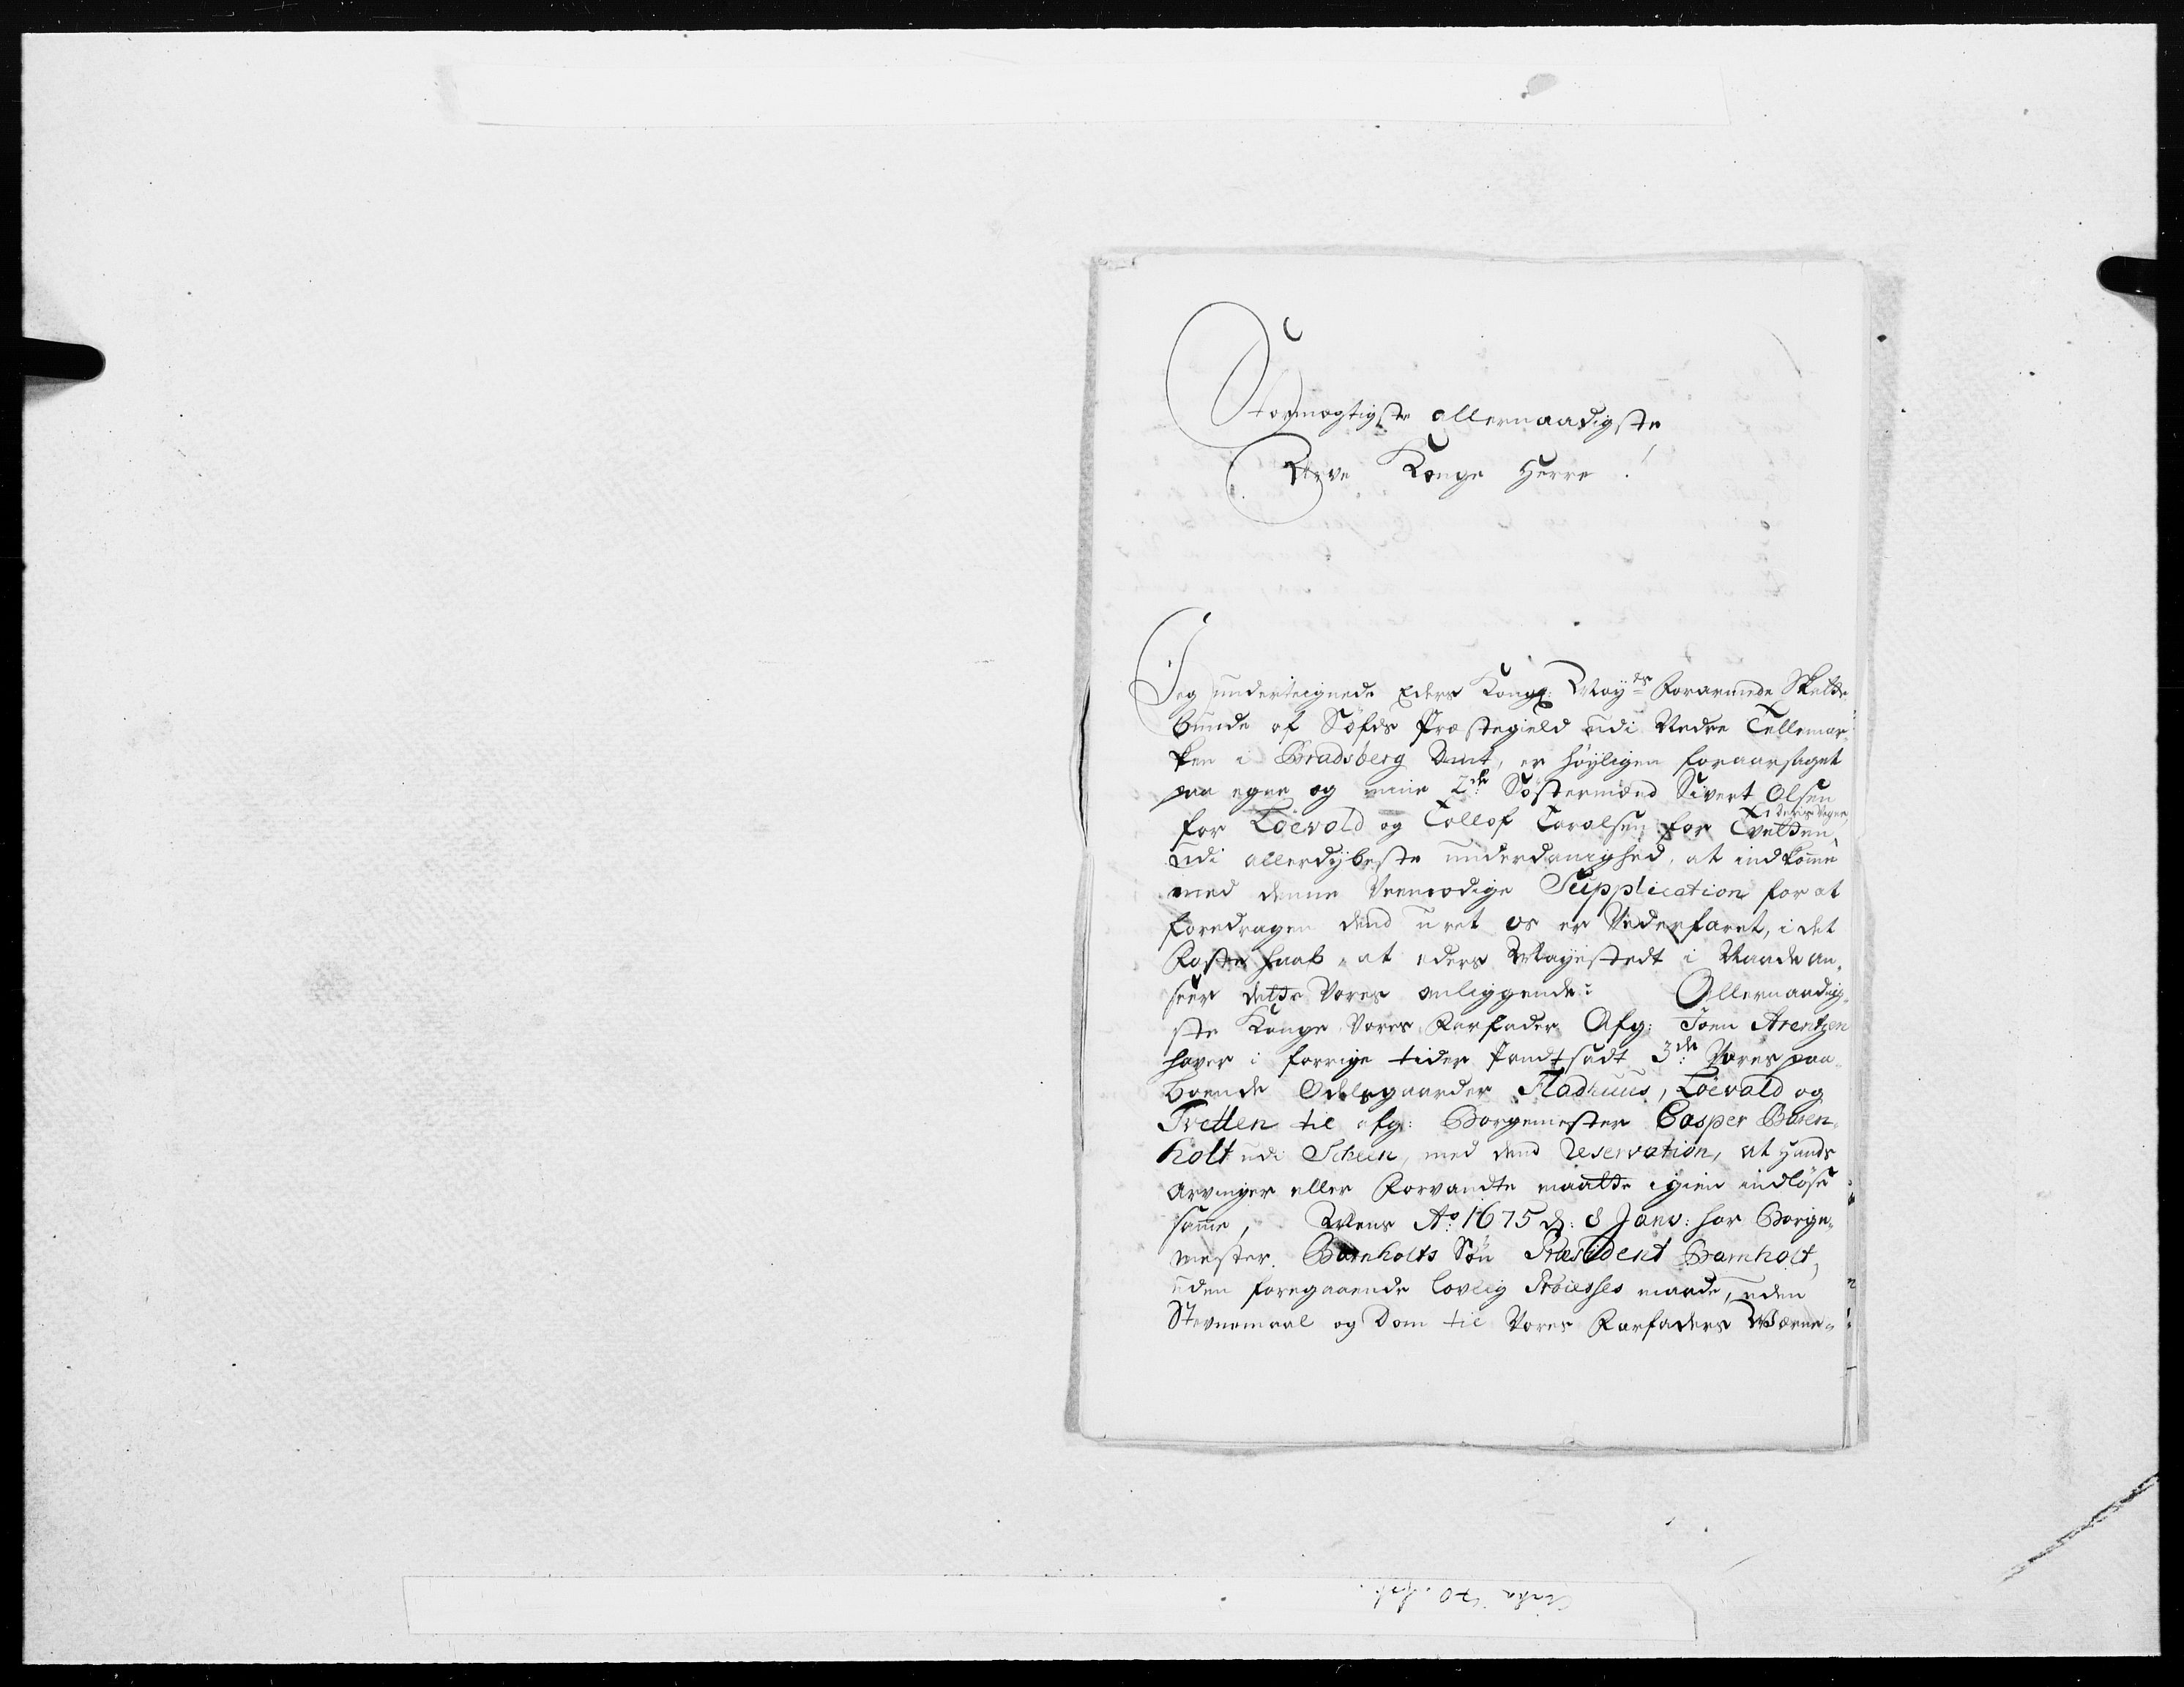 Stormægtigste allernaadigste
Arve Konge Herre!
Jeg underteignede Eders Kongl: May:ts Forarmede Skatte
bunde af Søfds Præstegield udi Nedre Tellemar-
ken i Bradsberg Amt, er høyligen foraarsaget
paa egne og mine 2de Søstermænd Sivert Olsen
Deris Vegne
for Loevald og Tollof Taralsen for Tvetten
udi allerdybeste underdanighed, at indkomme
med denne Veemodige Supplication for at
foredragen dend uret os er Vederfaret, i det
Faste haab, at eders Mayestedt i Naade an-
seer dette vores anliggende: Allernaadig-
ste Konge Vores Farfader Afg: Joen Arentzen
haver i forrige tider Pandtsadt 3de Vores paa-
boende Odelsgaarder Fladhuus, Loevald og
Tvetten til afg: Borgemester Casper Baren-
holt udi Scheen, med dend reservation, at hands
Arvinger eller Forvandte maatte igien indløse
samme, Mens Ao 1675 d: 8 Janv: har Borge-
mester Barnholts Søn Præsident Barnholt,
uden foregaaende lovlig Proiesses maade, uden
Stevnemaal og Dom til Vores Farfaders Værne-